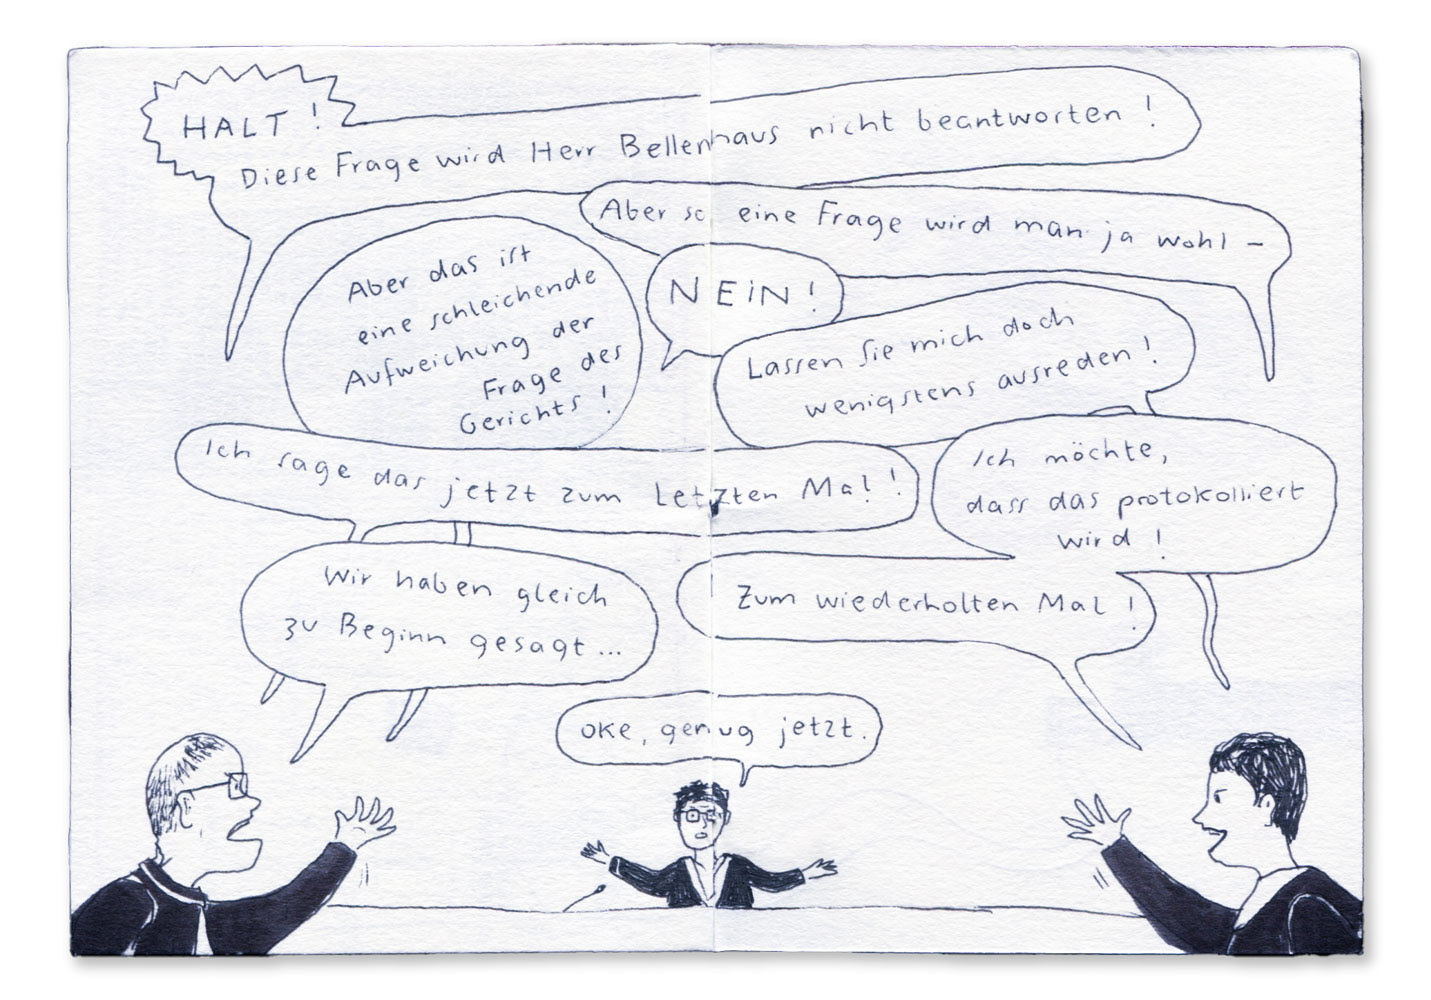 HALT !
Diese Frage wird Herr Bellenhaus nicht beantworten !
Aber so eine Frage wird man ja wohl –
NEIN !
Aber das ist
eine schleichende
Aufweichung der
Frage des
Gerichts !
Lassen Sie mich doch
wenigstens ausreden !
Ich sage das jetzt zum Letzten Mal !
Ich möchte,
dass das protokolliert
wird !
Wir haben gleich
zu Beginn gesagt ...
Zum wiederholten Mal !
OKE, genug jetzt.